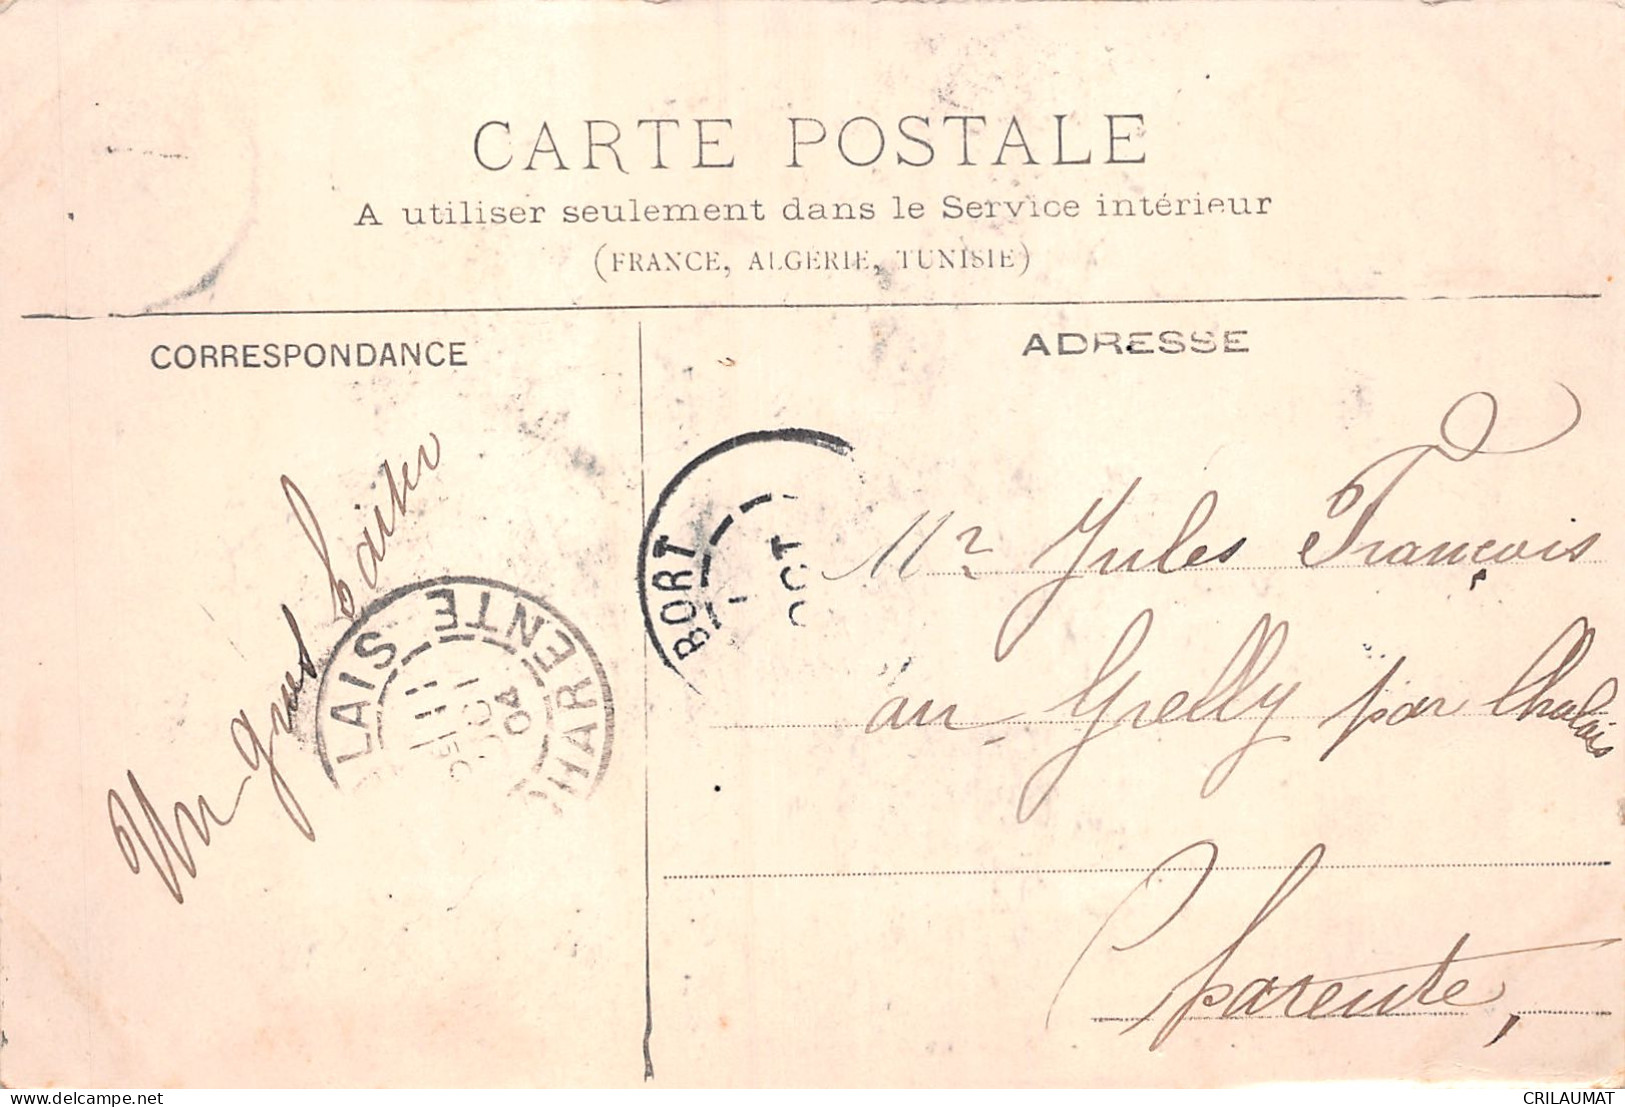 CARTE POSTALE
A utiliser seulement dans le Service intérieur
(FRANCE, ALGÉRIE, TUNISIE)
CORRESPONDANCE
ADRESSE
Un gros baiser
LAIS CHARENTE
OCT
04
BORT
OCT
Mr Jules François
au Grelly par Chalais
Charente,
www.delcampe.net
CRILAUMAT